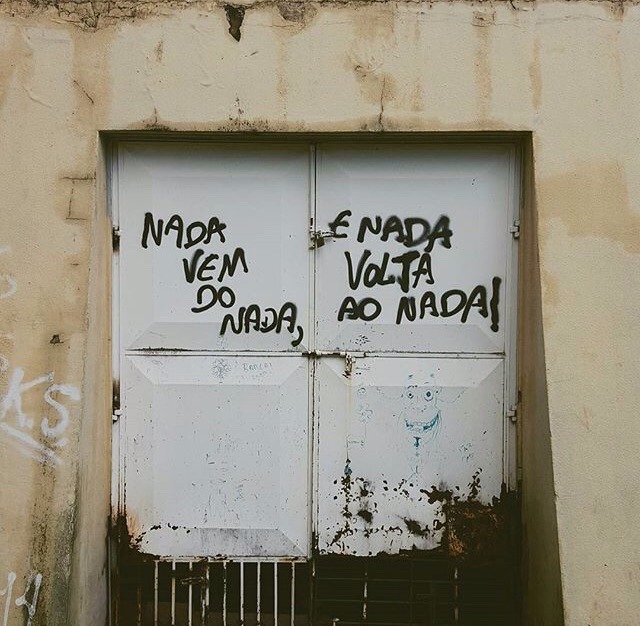 NADA
VEM
DO
NADA,
E NADA
VOLTA
AO NADA!
KS